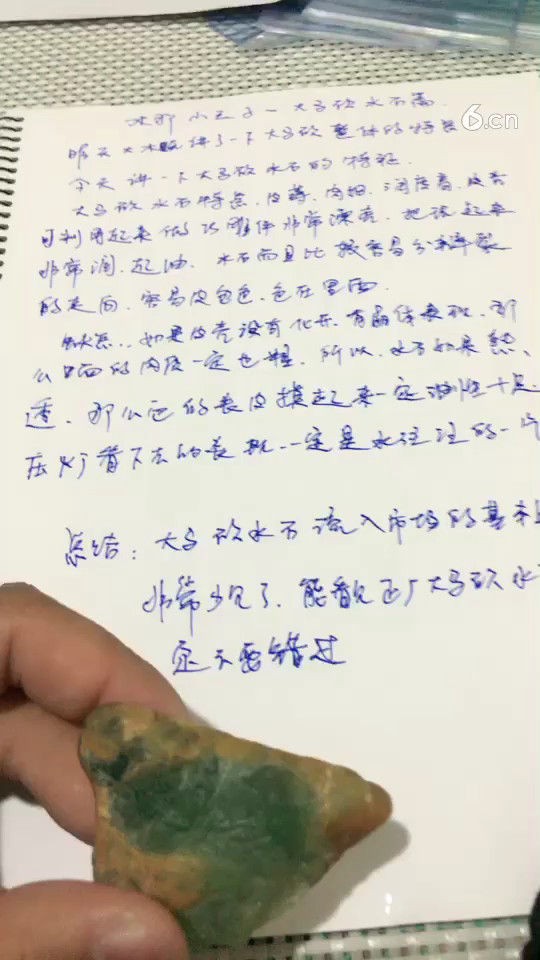 6.cn
木那小王子一大马砍水石篇
昨天大概讲了一下大马砍整体的特点
今天讲一下大马砍水石的特征.
大马砍水石特点,皮薄,肉细,润度高,皮壳
可利用起来做巧雕件非常漂亮.把玩起来
非常润,起油.水石而且比较容易分辨裂
的走向.容易皮包色,色在里面.
缺点:如果皮壳没有化开,有晶体表现,那
么里面的肉质一定也粗.所以,水石如果熟、
透、那么它的表皮摸起来一定油性十足.
压灯看下去的表现一定是水汪汪的一片
总结:大马砍水石流入市场的基本
非常少见了.能看见正广大马砍水
定不要错过